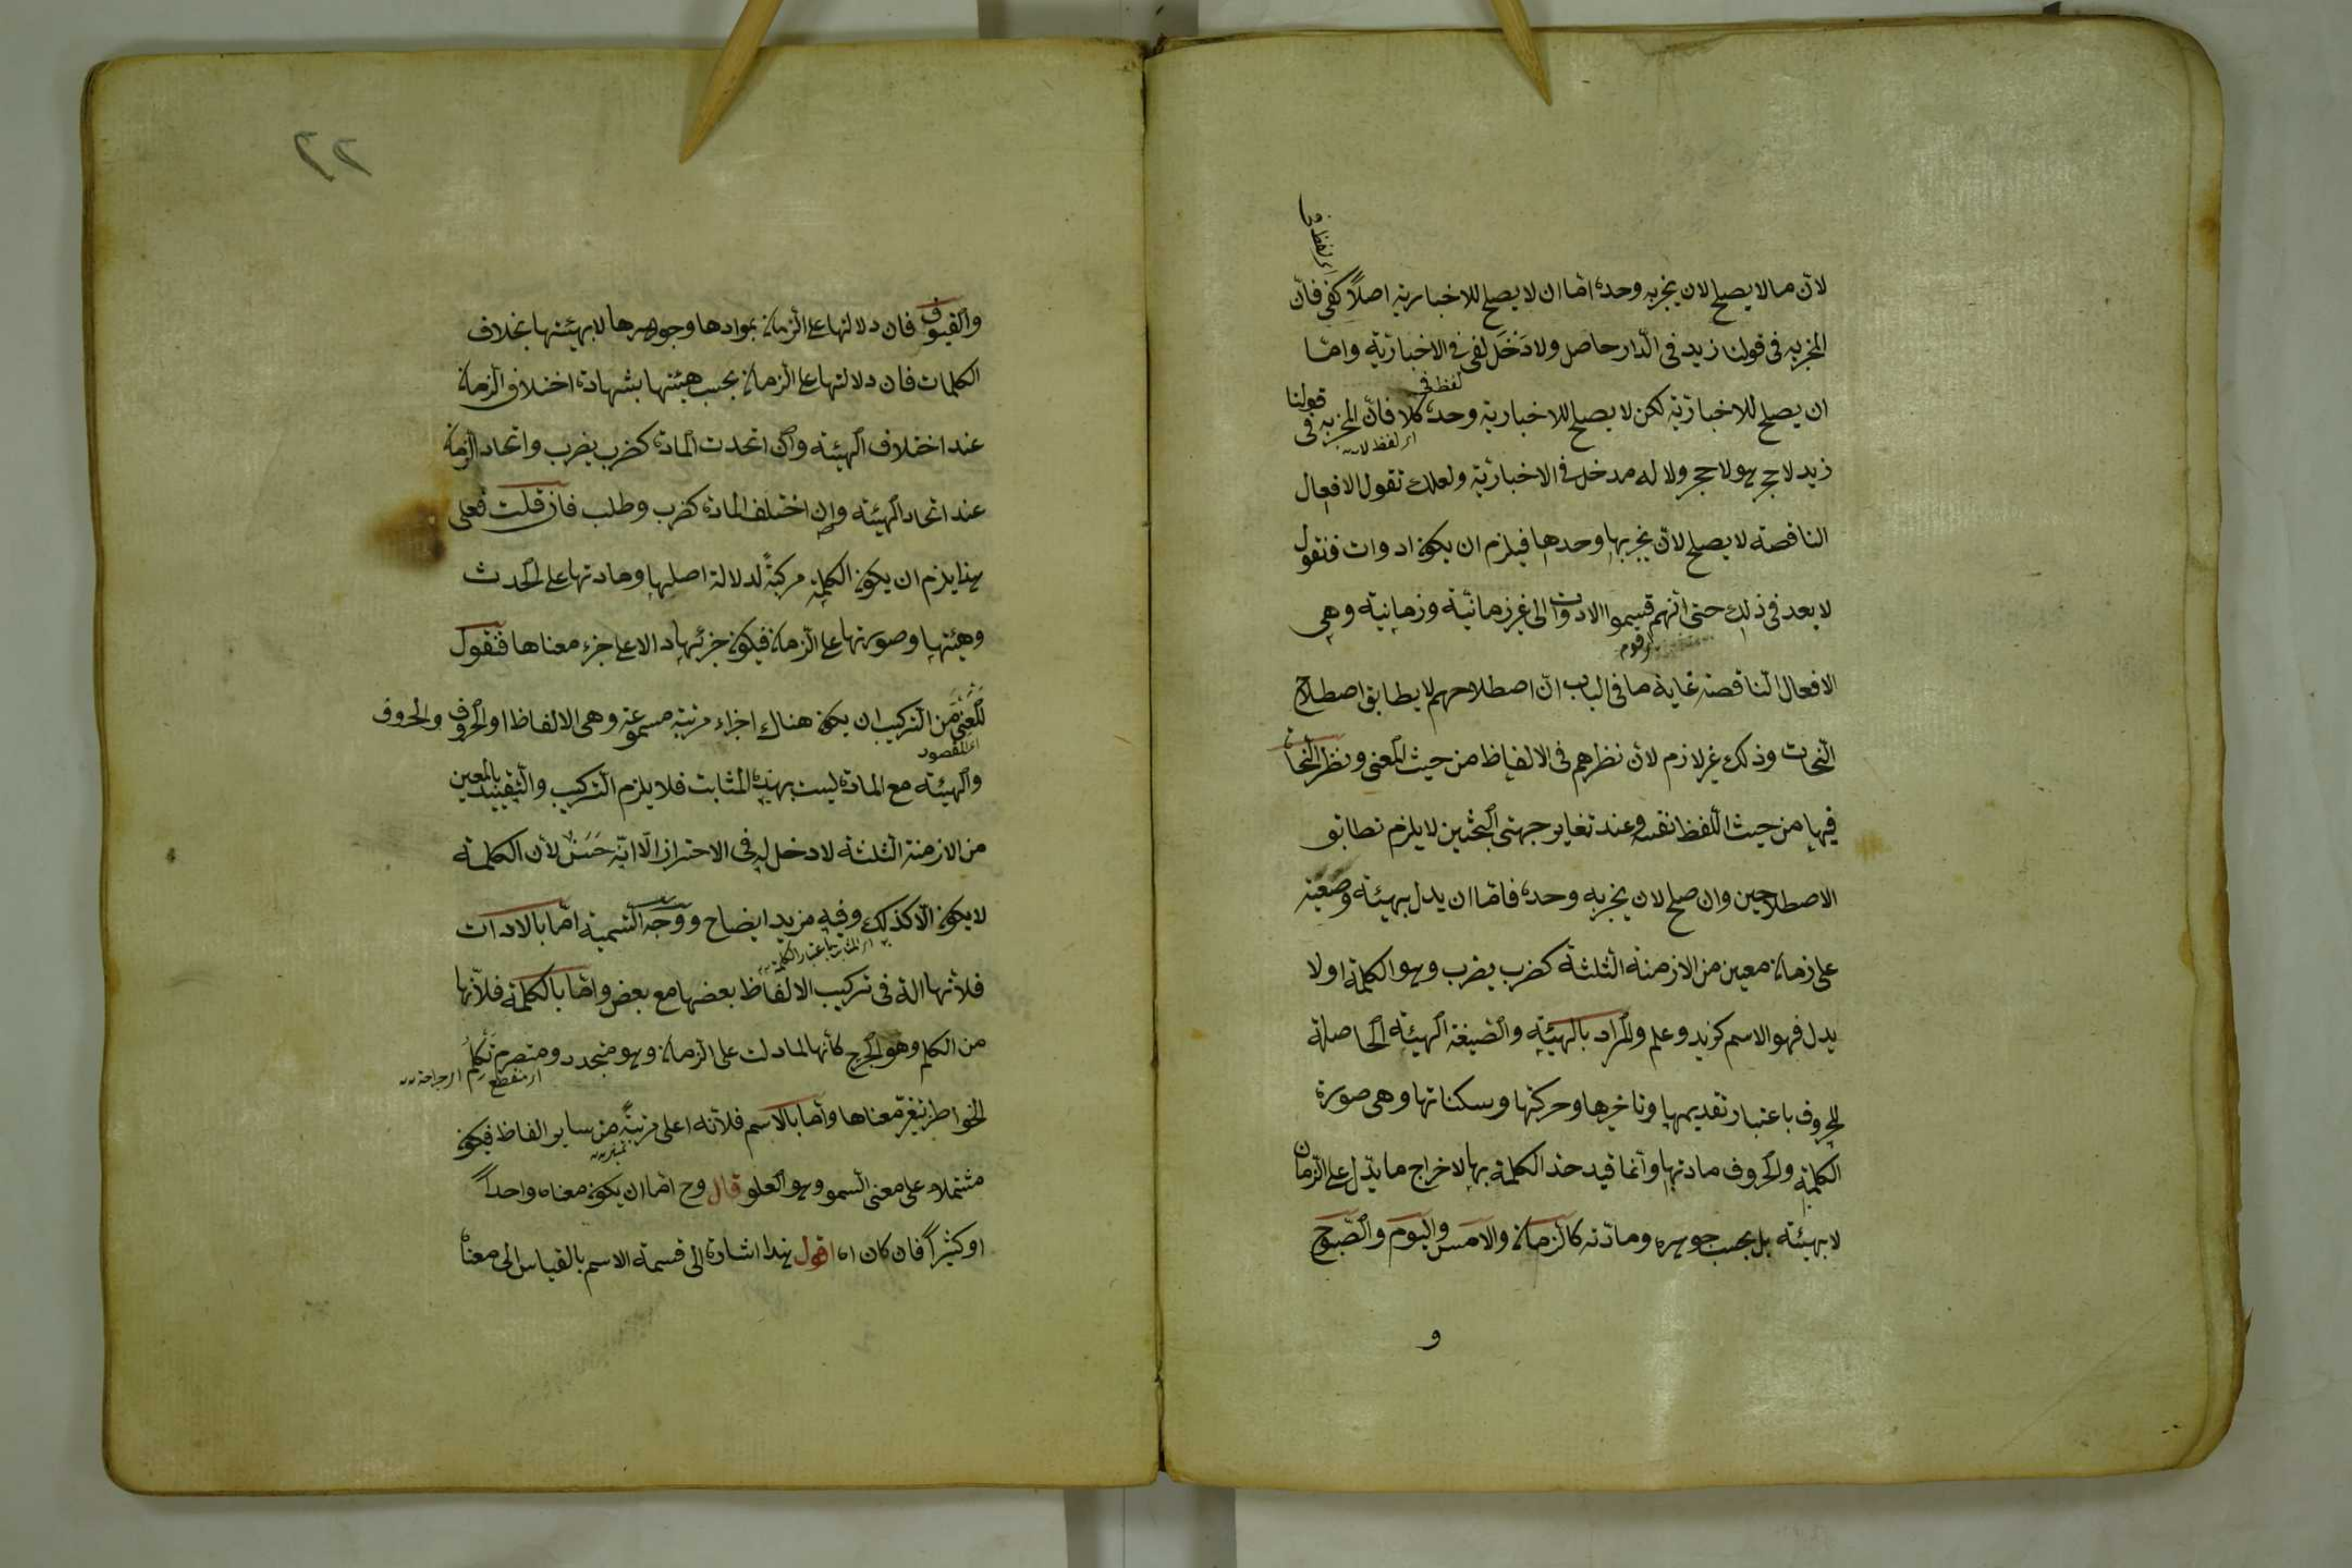 لان ما لا يصلح لان يخبر به وحده اما ان لا يصلح للاخبار به اصلاً كفى فان
المخبر به فى قولنا زيد فى الدار حاصل ولا دخل لفى فى الاخبار به واما
ان يصلح للاخبار به لكن لا يصلح للاخبار به وحده كلا فان المخبر به فى قولنا
زيد لا حجر هو لا حجر ولا له مدخل فى الاخبار به ولعلك تقول الافعال
الناقصة لا يصلح لان يخبر بها وحدها فيلزم ان يكون ادوات فنقول
لا بعد فى ذلك حتى انهم قسموا الادوات الى غير زمانية وزمانية وهى
الافعال الناقصة غاية ما فى الباب ان اصطلاحهم لا يطابق اصطلاح
النحات وذلك غير لازم لان نظرهم فى الالفاظ من حيث المعنى ونظر النحات
فيها من حيث اللفظ نفسه وعند تغاير جهتى البحثين لا يلزم تطابق
الاصطلاحين وان صلح لان يخبر به وحده فاما ان يدل بهيئة وصيغة
على زمان معين من الازمنة الثلثة كضرب يضرب وهو الكلمة او لا
يدل فهو الاسم كزيد وعلم والمراد بالهيئة والصيغة الهيئة الحاصلة
للحروف باعتبار تقديمها وتاخيرها وحركتها وسكناتها وهى صورة
الكلمة والحروف مادتها وانما قيد حد الكلمة بها لاخراج ما يدل على الزمان
لا بهيئة بل بحسب جوهره ومادته كالزمان والامس واليوم والصبوح
و
٢٢
والغبوق فان دلالتها على الزمان بموادها وجوهرها لا بهيئتها بخلاف
الكلمات فان دلالتها على الزمان بحسب هيئتها بشهادة اختلاف الزمان
عند اختلاف الهيئة وان اتحدت المادة كضرب يضرب واتحاد الزمان
عند اتحاد الهيئة وان اختلف المادة كضرب وطلب فان قلت فعلى
هذا يلزم ان يكون الكلمة مركبة لدلالة اصلها ومادتها على الحدث
وهيئتها وصورتها على الزمان فيكون جزئها دالا على جزء معناها فنقول
المعنى من التركيب ان يكون هناك اجزاء مرتبة مسموعة وهى الالفاظ او الحروف والحروف
اى المقصود
والهيئة مع المادة ليست بهذه المثابت فلا يلزم التركيب والتقييد بالمعين
من الازمنة الثلثة لا دخل له فى الاحتراز الا انه حسن لان الكلمة
لا يكون الا كذلك وفيه مزيد ايضاح ووجه التسمية اما بالادات
فلانها الة فى تركيب الالفاظ بعضها مع بعض واما بالكلمة فلانها
من الكلم وهو الجرح كانها لما دلت على الزمان وهو متجدد ومتصرم تكلم
الخواطر بتغير معناها واما بالاسم فلانه اعلى مرتبة من ساير الفاظ فيكون
مشتملا على معنى السمو وهو العلو قال وح اما ان يكون معناه واحداً
او كثيراً فان كان اه اقول هذا اشارة الى قسمة الاسم بالقياس الى معناه